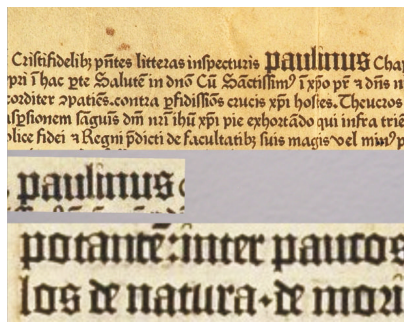 Cristifidelibꝫ pn̄tes litteras inspecturis paulinus Chap
pri ī hac ꝑte Salutē in dn̄o Cū Sāctissimꝰ ī xp̄o pr̄ ⁊ dn̄s n
corditer ↄpatiēs contra ꝑfidissiōs crucis xp̄i hostes. Theucros
aspersionem sāguīs dn̄i nr̄i ihū xp̄i pie exhortādo qui infra triē
olice fidei ⁊ Regni p̄dicti de facultatibꝫ suis magis vel minꝰ p
paulinus
potantē: inter paucos
los de natura. de mori